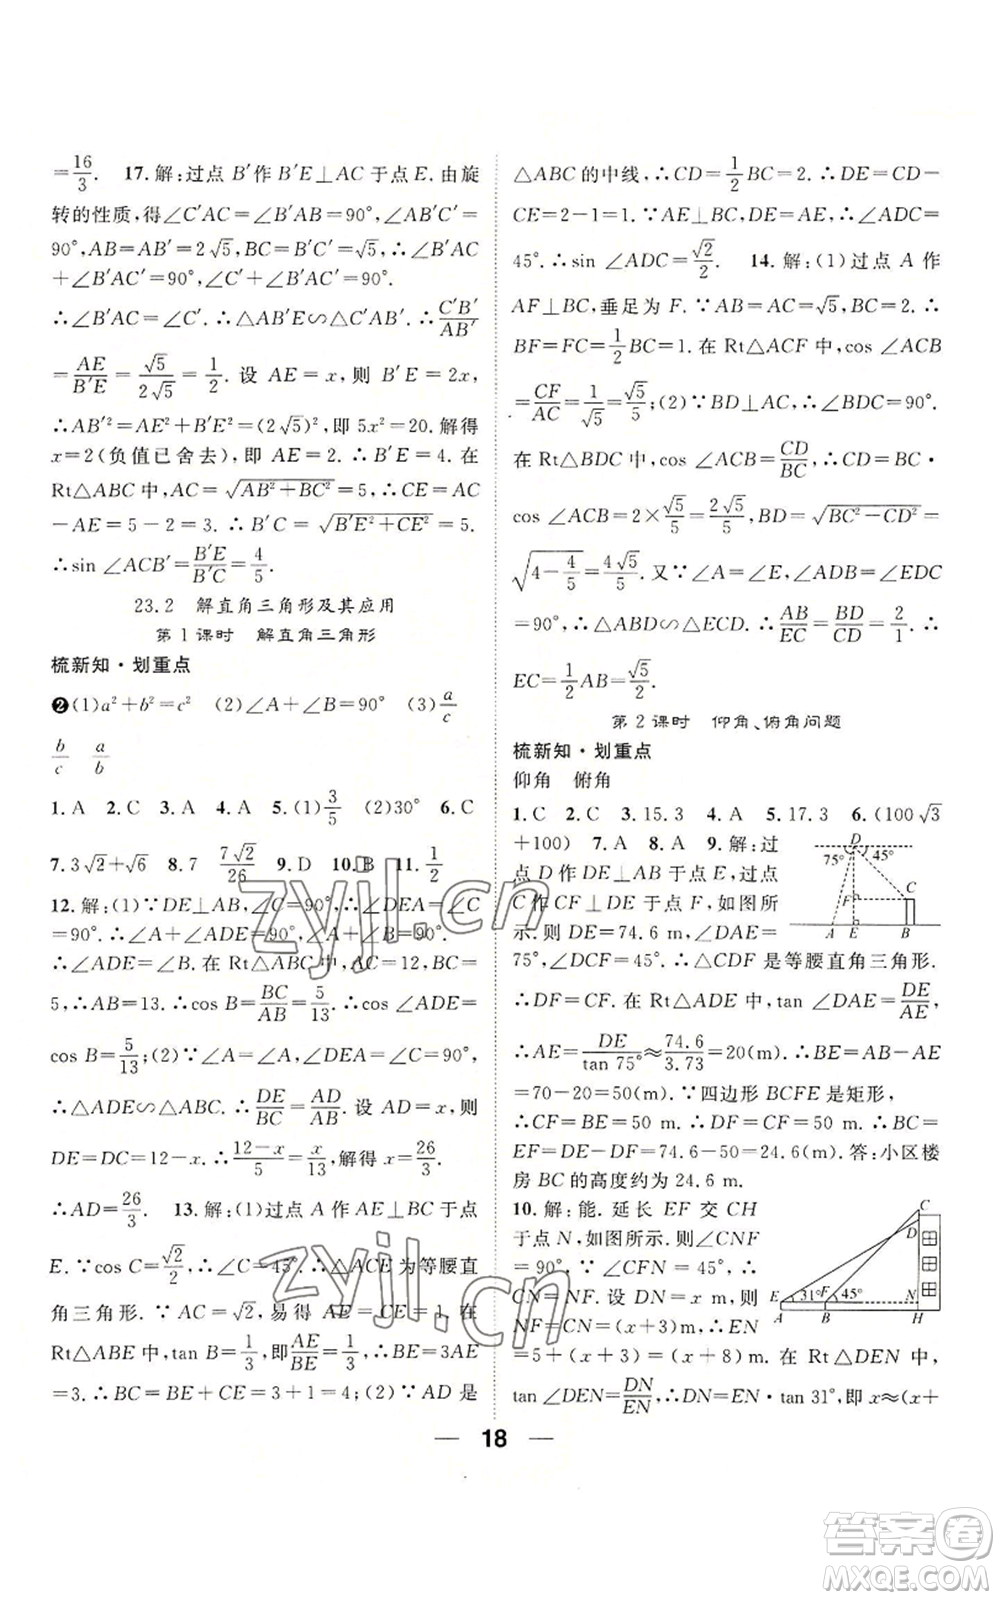 =16/3. 17.解:过点 B′作 B′E⊥AC 于点 E.由旋
转的性质,得∠C′AC=∠B′AB=90°,∠AB′C′=
90°,AB=AB′=2√5,BC=B′C′=√5,∴∠B′AC
+∠B′AC′=90°,∠C′+∠B′AC′=90°.
∴∠B′AC=∠C′.∴△AB′E∽△C′AB′.∴C′B′/AB′
=AE/B′E=√5/2√5=1/2.设 AE=x,则 B′E=2x,
∴AB′²=AE²+B′E²=(2√5)²,即 5x²=20.解得
x=2(负值已舍去),即 AE=2.∴B′E=4.在
Rt△ABC 中,AC=√(AB²+BC²)=5,∴CE=AC
-AE=5-2=3.∴B′C=√(B′E²+CE²)=5.
∴sin ∠ACB′=B′E/B′C=4/5.
23.2 解直角三角形及其应用
第 1 课时 解直角三角形
梳新知·划重点
❷(1)a²+b²=c² (2)∠A+∠B=90° (3)a/c
b/c a/b
1.A 2.C 3.A 4.A 5.(1)3/5 (2)30° 6.C
7.3√2+√6 8.7 7√2/26 9.D 10.B 11.1/2
12.解:(1)∵DE⊥AB,∠C=90°,∴∠DEA=∠C
=90°.∴∠A+∠ADE=90°.∵∠A+∠B=90°,
∴∠ADE=∠B.在 Rt△ABC 中,∵AC=12,BC=
5,∴AB=13.∴cos B=BC/AB=5/13.∴cos∠ADE=
cos B=5/13;(2)∵∠A=∠A,∠DEA=∠C=90°,
∴△ADE∽△ABC.∴DE/BC=AD/AB.设 AD=x,则
DE=DC=12-x.∴(12-x)/5=x/13,解得 x=26/3.
∴AD=26/3. 13.解:(1)过点 A 作 AE⊥BC 于点
E.∵cos C=√2/2,∴∠C=45°.∴△ACE 为等腰直
角三角形.∵AC=√2,易得 AE=CE=1.在
Rt△ABE 中,tan B=1/3,即AE/BE=1/3,∴BE=3AE
=3.∴BC=BE+CE=3+1=4;(2)∵AD 是
△ABC 的中线,∴CD=1/2BC=2.∴DE=CD-
CE=2-1=1.∵AE⊥BC,DE=AE,∴∠ADC=
45°.∴sin ∠ADC=√2/2. 14.解:(1)过点 A 作
AF⊥BC,垂足为 F.∵AB=AC=√5,BC=2.∴
BF=FC=1/2BC=1.在 Rt△ACF 中,cos ∠ACB
=CF/AC=1/√5=√5/5;(2)∵BD⊥AC,∴∠BDC=90°.
在 Rt△BDC 中,cos ∠ACB=CD/BC,∴CD=BC·
cos ∠ACB=2×√5/5=2√5/5,BD=√(BC²-CD²)=
√(4-4/5)=4√5/5.又∵∠A=∠E,∠ADB=∠EDC
=90°,∴△ABD∽△ECD.∴AB/EC=BD/CD=2/1.∴
EC=1/2AB=√5/2.
第 2 课时 仰角、俯角问题
梳新知·划重点
仰角 俯角
1.C 2.C 3.15.3 4.A 5.17.3 6.(100√3
+100) 7.A 8.A 9.解:过
点 D 作 DE⊥AB 于点 E,过点
C 作 CF⊥DE 于点 F,如图所
示.则 DE=74.6 m,∠DAE=
75°,∠DCF=45°.∴△CDF 是等腰直角三角形.
∴DF=CF.在 Rt△ADE 中,tan ∠DAE=DE/AE,
∴AE=DE/tan 75°≈74.6/3.73=20(m).∴BE=AB-AE
=70-20=50(m).∵四边形 BCFE 是矩形,
∴CF=BE=50 m.∴DF=CF=50 m.∴BC=
EF=DE-DF=74.6-50=24.6 m.答:小区楼
房 BC 的高度约为 24.6 m.
10.解:能.延长 EF 交 CH
于点 N,如图所示.则∠CNF
=90°.∵∠CFN=45°,∴
CN=NF.设 DN=x m,则
NF=CN=(x+3)m.∴EN
=5+(x+3)=(x+8)m.在 Rt△DEN 中,
tan ∠DEN=DN/EN,∴DN=EN·tan 31°,即 x≈(x+
D
75° 45°
F C
A E B
C
D
E 31° F 45° N
A B H
18
zyjl.cn
zyjl.cn
答案圈
MXQE.COM